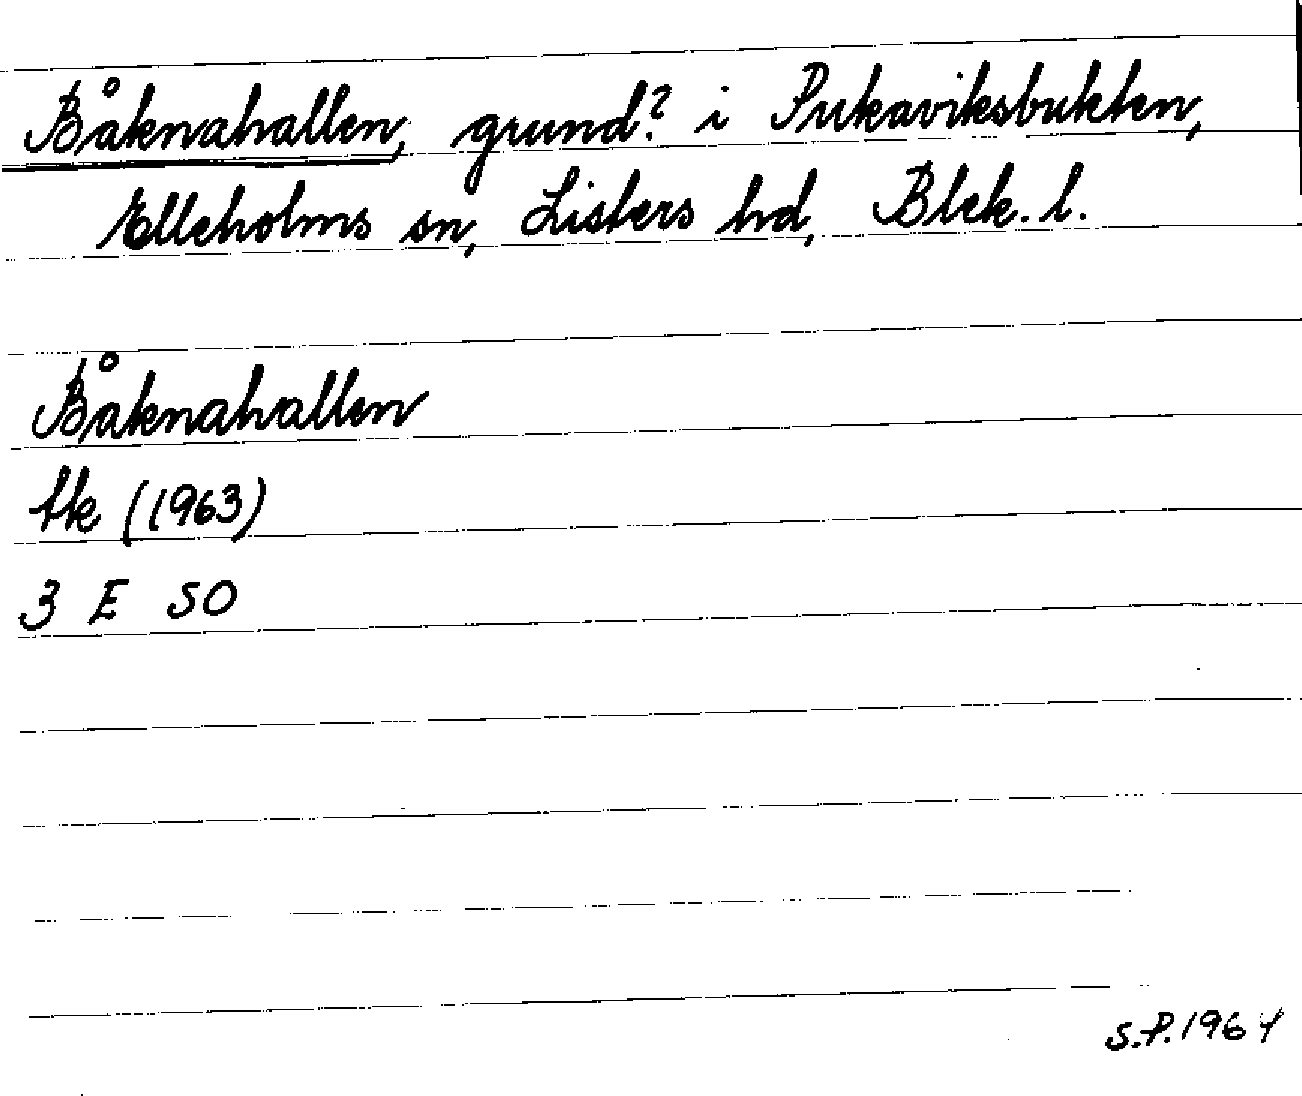 Båknahallen, grund? i Pukaviksbukten,
Elleholms sn, Listers hd, Blek. l.
Båknahallen
tk (1963)
3 E SO
S.P. 1964